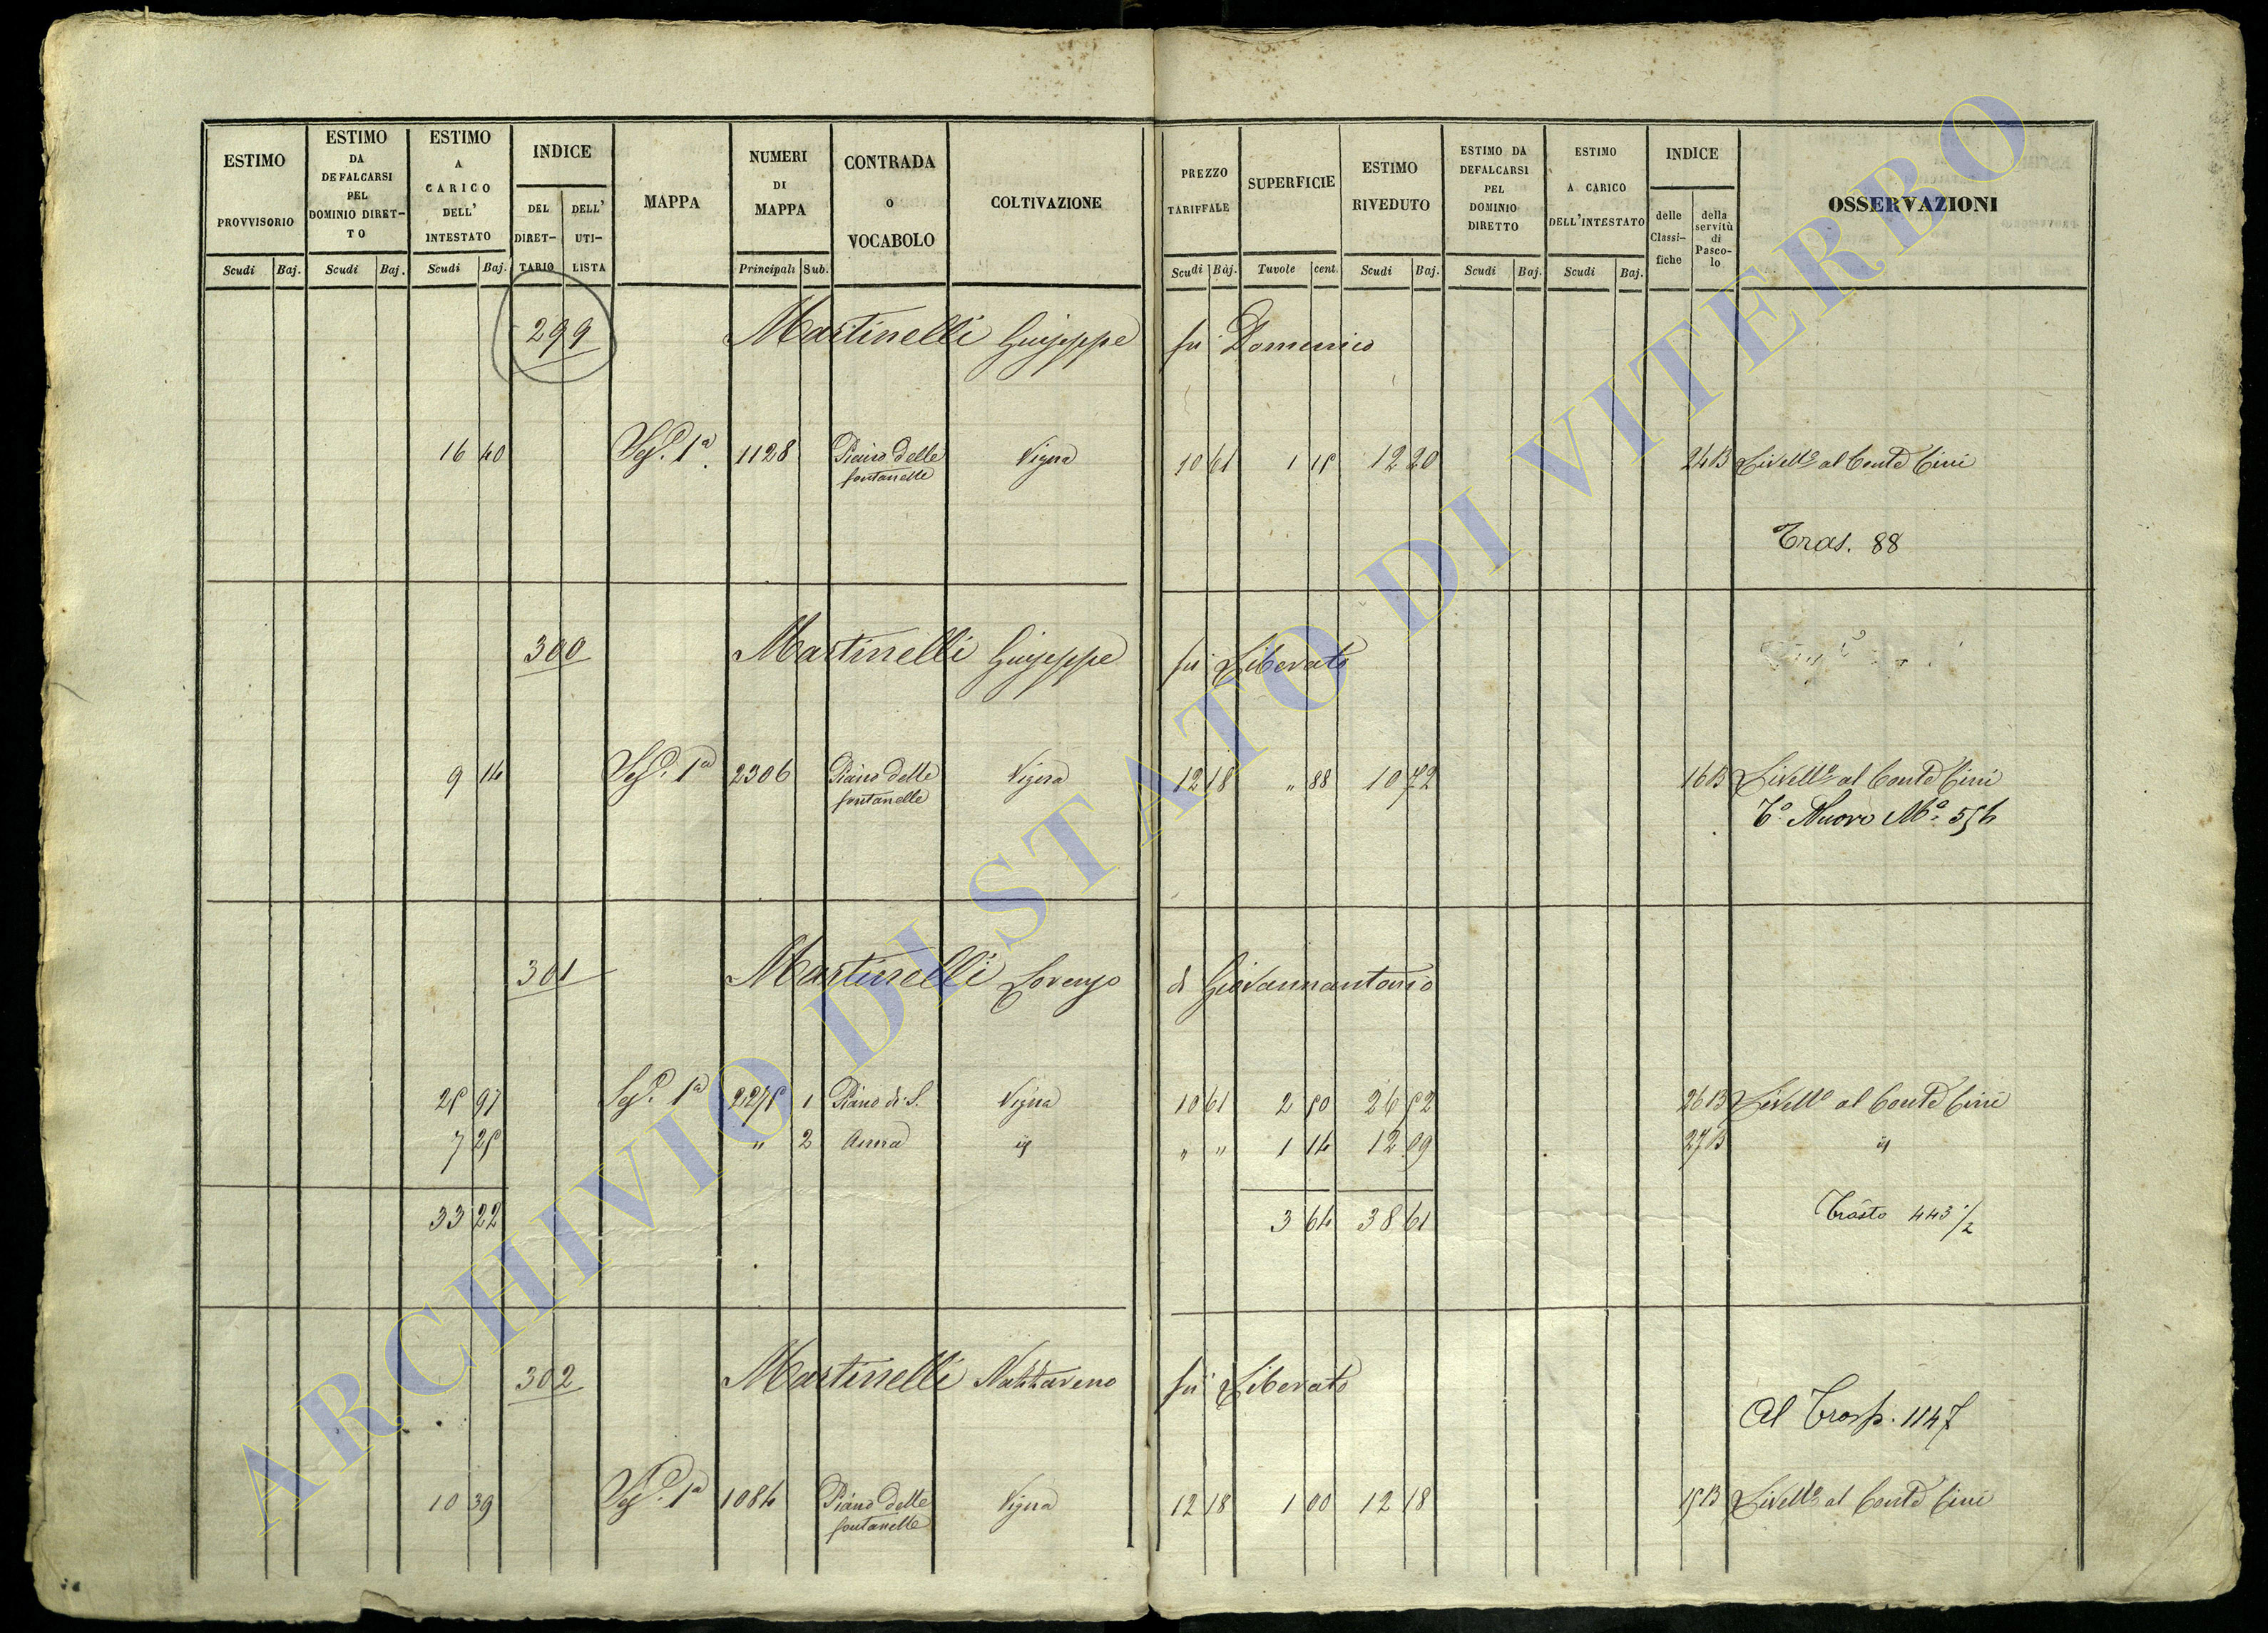 ESTIMO PROVVISORIO
ESTIMO DA DEFALCARSI PEL DOMINIO DIRET-TO
ESTIMO A CARICO DELL' INTESTATO
INDICE
DEL DIRET-TARIO
DELL' UTI-LISTA
MAPPA
NUMERI DI MAPPA
CONTRADA o VOCABOLO
COLTIVAZIONE
PREZZO TARIFFALE
SUPERFICIE
ESTIMO RIVEDUTO
ESTIMO DA DEFALCARSI PEL DOMINIO DIRETTO
ESTIMO A CARICO DELL'INTESTATO
INDICE
delle Classi-fiche
della servitù di Pasco-lo
OSSERVAZIONI
Scudi Baj. Scudi Baj. Scudi Baj. Principali Sub. Scudi Baj. Tavole cent. Scudi Baj. Scudi Baj. Scudi Baj.
299 Martinelli Giuseppe fu Domenico
16 40 Sez. 1a 1128 Piano delle Vigna 10 61 1 15 12 20 24 B Livello al Conte Cini
fontanelle
Tras. 88
300 Martinelli Giuseppe fu Liberato
9 14 Sez. 1a 2306 Piano delle Vigna 12 18 " 88 10 72 16 B Livello al Conte Cini
fontanelle
To. Nuovo Mo.
301 Martinelli Lorenzo di Giovannantonio
25 97 Sez. 1a 2275 1 Piano di S. Vigna 10 61 2 50 26 52 26 B Livello al Conte Cini
7 25 " 2 Anna id " " 1 14 12 09 27 B id
33 22 3 64 38 61 Trasto 443 1/2
302 Martinelli Nazzareno fu Liberato
Al Trasp. 1147
10 39 Sez. 1a 1084 Piano delle Vigna 12 18 1 00 12 18 15 B Livello al Conte Cini
fontanelle
ARCHIVIO DI STATO DI VITERBO